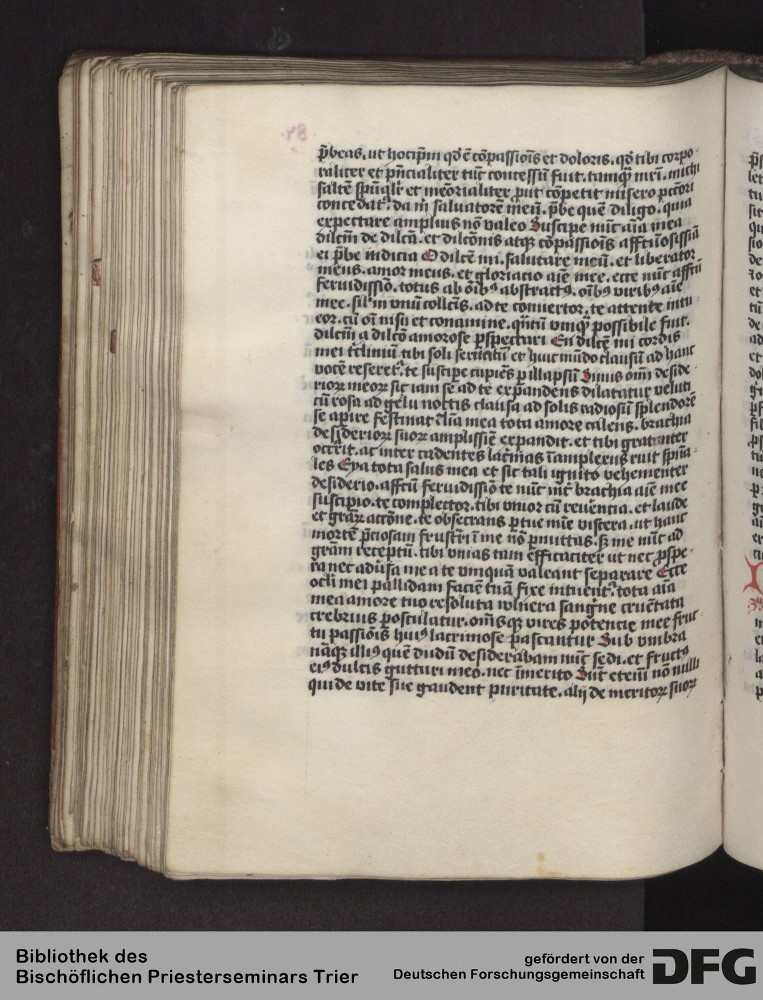 p̄beas. ut hoc ip̄m qd' ē cōpassiōis et doloris. qd' tibi corpo
raliter et pn̄cialiter tūc concessū fuit. tamqȝ mr̄i. michi
saltē sp̄uqlr̄ et memōrialiter put cōpetit misero pctōri
concedat᷑. da m̄ saluatorē meū. p̄be quē diligo. quia
expectare amplius nō valeo Suscipe nūc aīa mea
dilcm̄ de dilcā. et dilcōnis atqȝ cōpassiōis affectuosissīa
ei p̄be indicia O dilcē mi. salutare meū. et liberator
meus. amor meus. et gloriatio aīe mee. ecce nūc affctū
feruidissīo. totus ab oībꝰ abstractꝰ. oībꝰ viribꝰ aīe
mee. sil'm vnū collcīs. ad te conuertor. te attente intu
eor. cū oī nisu et conamine. qn̄tū vmqȝ possibile fuit.
dilcm̄ a dilcō amorose pspectari En dilcē mi cordis
mei tclīniū tibi soli seruatū et huic mūdo clausū ad hanc
vocē reseret᷑. te suscipe cupiēs p illapsū Sinus oīm deside
rioꝝ meoꝝ sic iam se ad te expandens dilatatur veluti
cū rosa ad gelu noctis clausa ad solis radiosū splendorē
se apire festinat Aīa mea tota amore calens. brachia
desideriorꝝ suoꝝ amplissīe expandit. et tibi gratanter
occrīt. ac inter cadentes lacr̄mas ī amplexus ruit spūa
les Eya tota salus mea et sic tali ignito vehementer
desiderio. affctū feruidissīo te nūc int̄ brachia aīe mee
suscipio. te complector. tibi vnior cū reuēntia. et laude
et graꝝ accōne. te obsecrans p tue mīe viscera. ut hanc
mortē p̄ciosam frustrī ī me nō pmittas. sȝ me nūc ad
grām receptū. tibi vnias tam efficaciter ut nec pspe
ra nec adūsa me a te vmquā valeant separare Ecce
ocli mei pallidam faciē tuā fixe intuent᷑. tota aīa
mea amore tuo resoluta wlnera sangn̄e cruētata
crebrius postulatur. om̄esqȝ vires potencie mee fruc
tu passiōis huiꝰ lacrimose pascantur Sub vmbra
nāqȝ illiꝰ quē dudū desiderabam nūc sedi. et fructꝰ
eiꝰ dulcis gutturi meo. nec īmerito Sūt eteīm nō nulli
qui de vite sue gaudent puritate. alij de meritoꝝ suoꝝ
Bibliothek des
Bischöflichen Priesterseminars Trier
gefördert von der
Deutschen Forschungsgemeinschaft
DFG